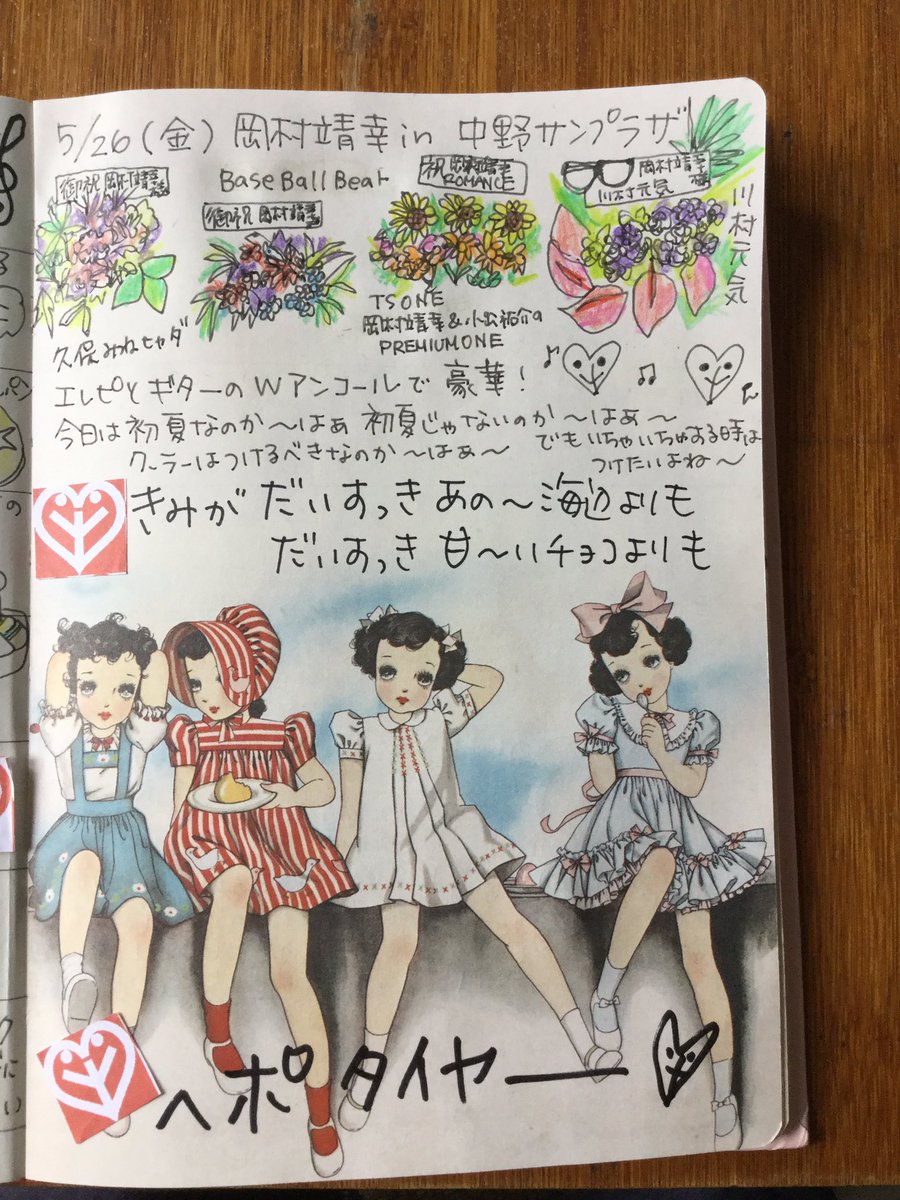 5/26(金) 岡村靖幸 in 中野サンプラザ
御祝 岡村靖幸
Base Ball Bear
御祝 岡村靖幸
祝 岡村靖幸
ROMANCE
岡村靖幸
川村元気
川村元気
久保みねヒャダ
TSONE
岡村靖幸&小出祐介の
PREMIUMONE
エレピとギターのWアンコールで豪華!
今日は初夏なのか〜はぁ 初夏じゃないのか〜はぁ〜
クーラーはつけるべきなのか〜はぁ〜 でもいちゃいちゃする時は
つけたいよね〜
きみが だいすっき あの〜海辺よりも
だいすっき 甘〜いチョコよりも
ヘポタイヤー